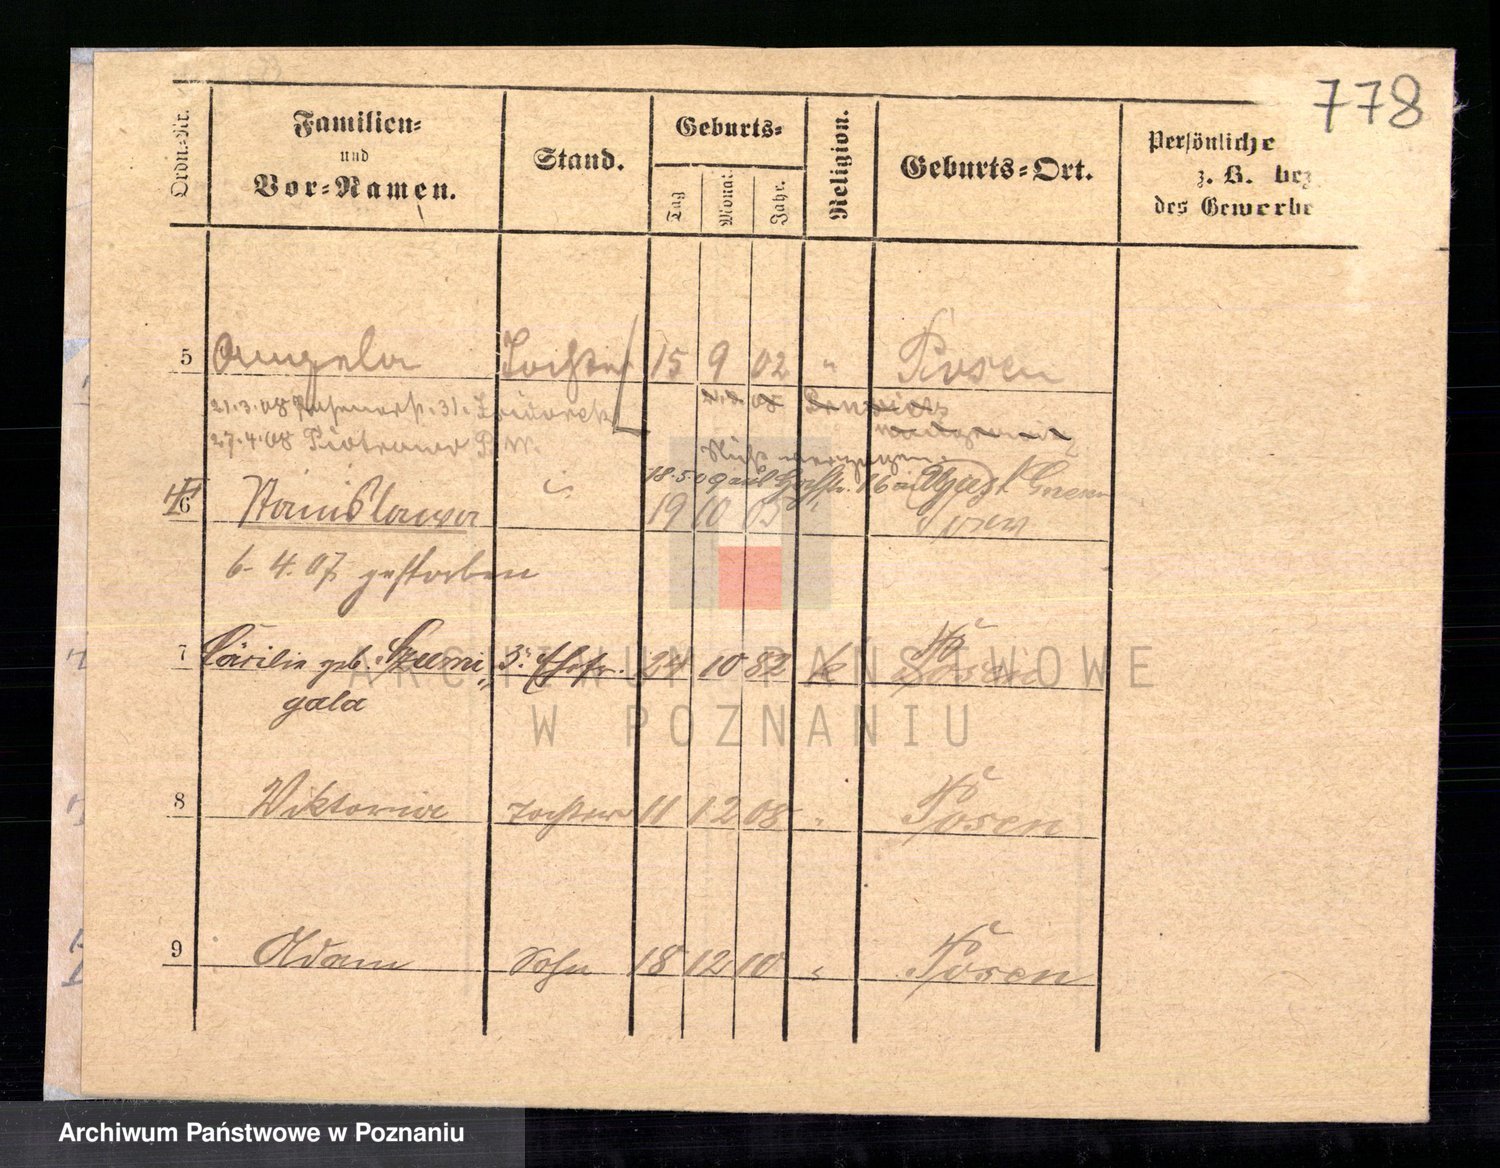 778
Ordn.-Nr.
Familien-
und
Vor-Namen.
Stand.
Geburts-
Tag
Monat
Jahr.
Religion.
Geburts-Ort.
Persönliche
z. B. bez
des Gewerbe
5 Angela Tochter 15 9 02 " Posen
21.3.08 31.
27.4.08 Piotrowo P. W.
18.5.09
6 Stanislawa " 19 10 05 " Posen
6. 4. 07 gestorben
7 Cäcilie geb. Szumi- 3. Ehefr. 24 10 82 k Posen
gala
8 Wiktoria Tochter 11 12 08 " Posen
9 Adam Sohn 18 12 10 " Posen
ARCHIWUM PAŃSTWOWE
W POZNANIU
Archiwum Państwowe w Poznaniu